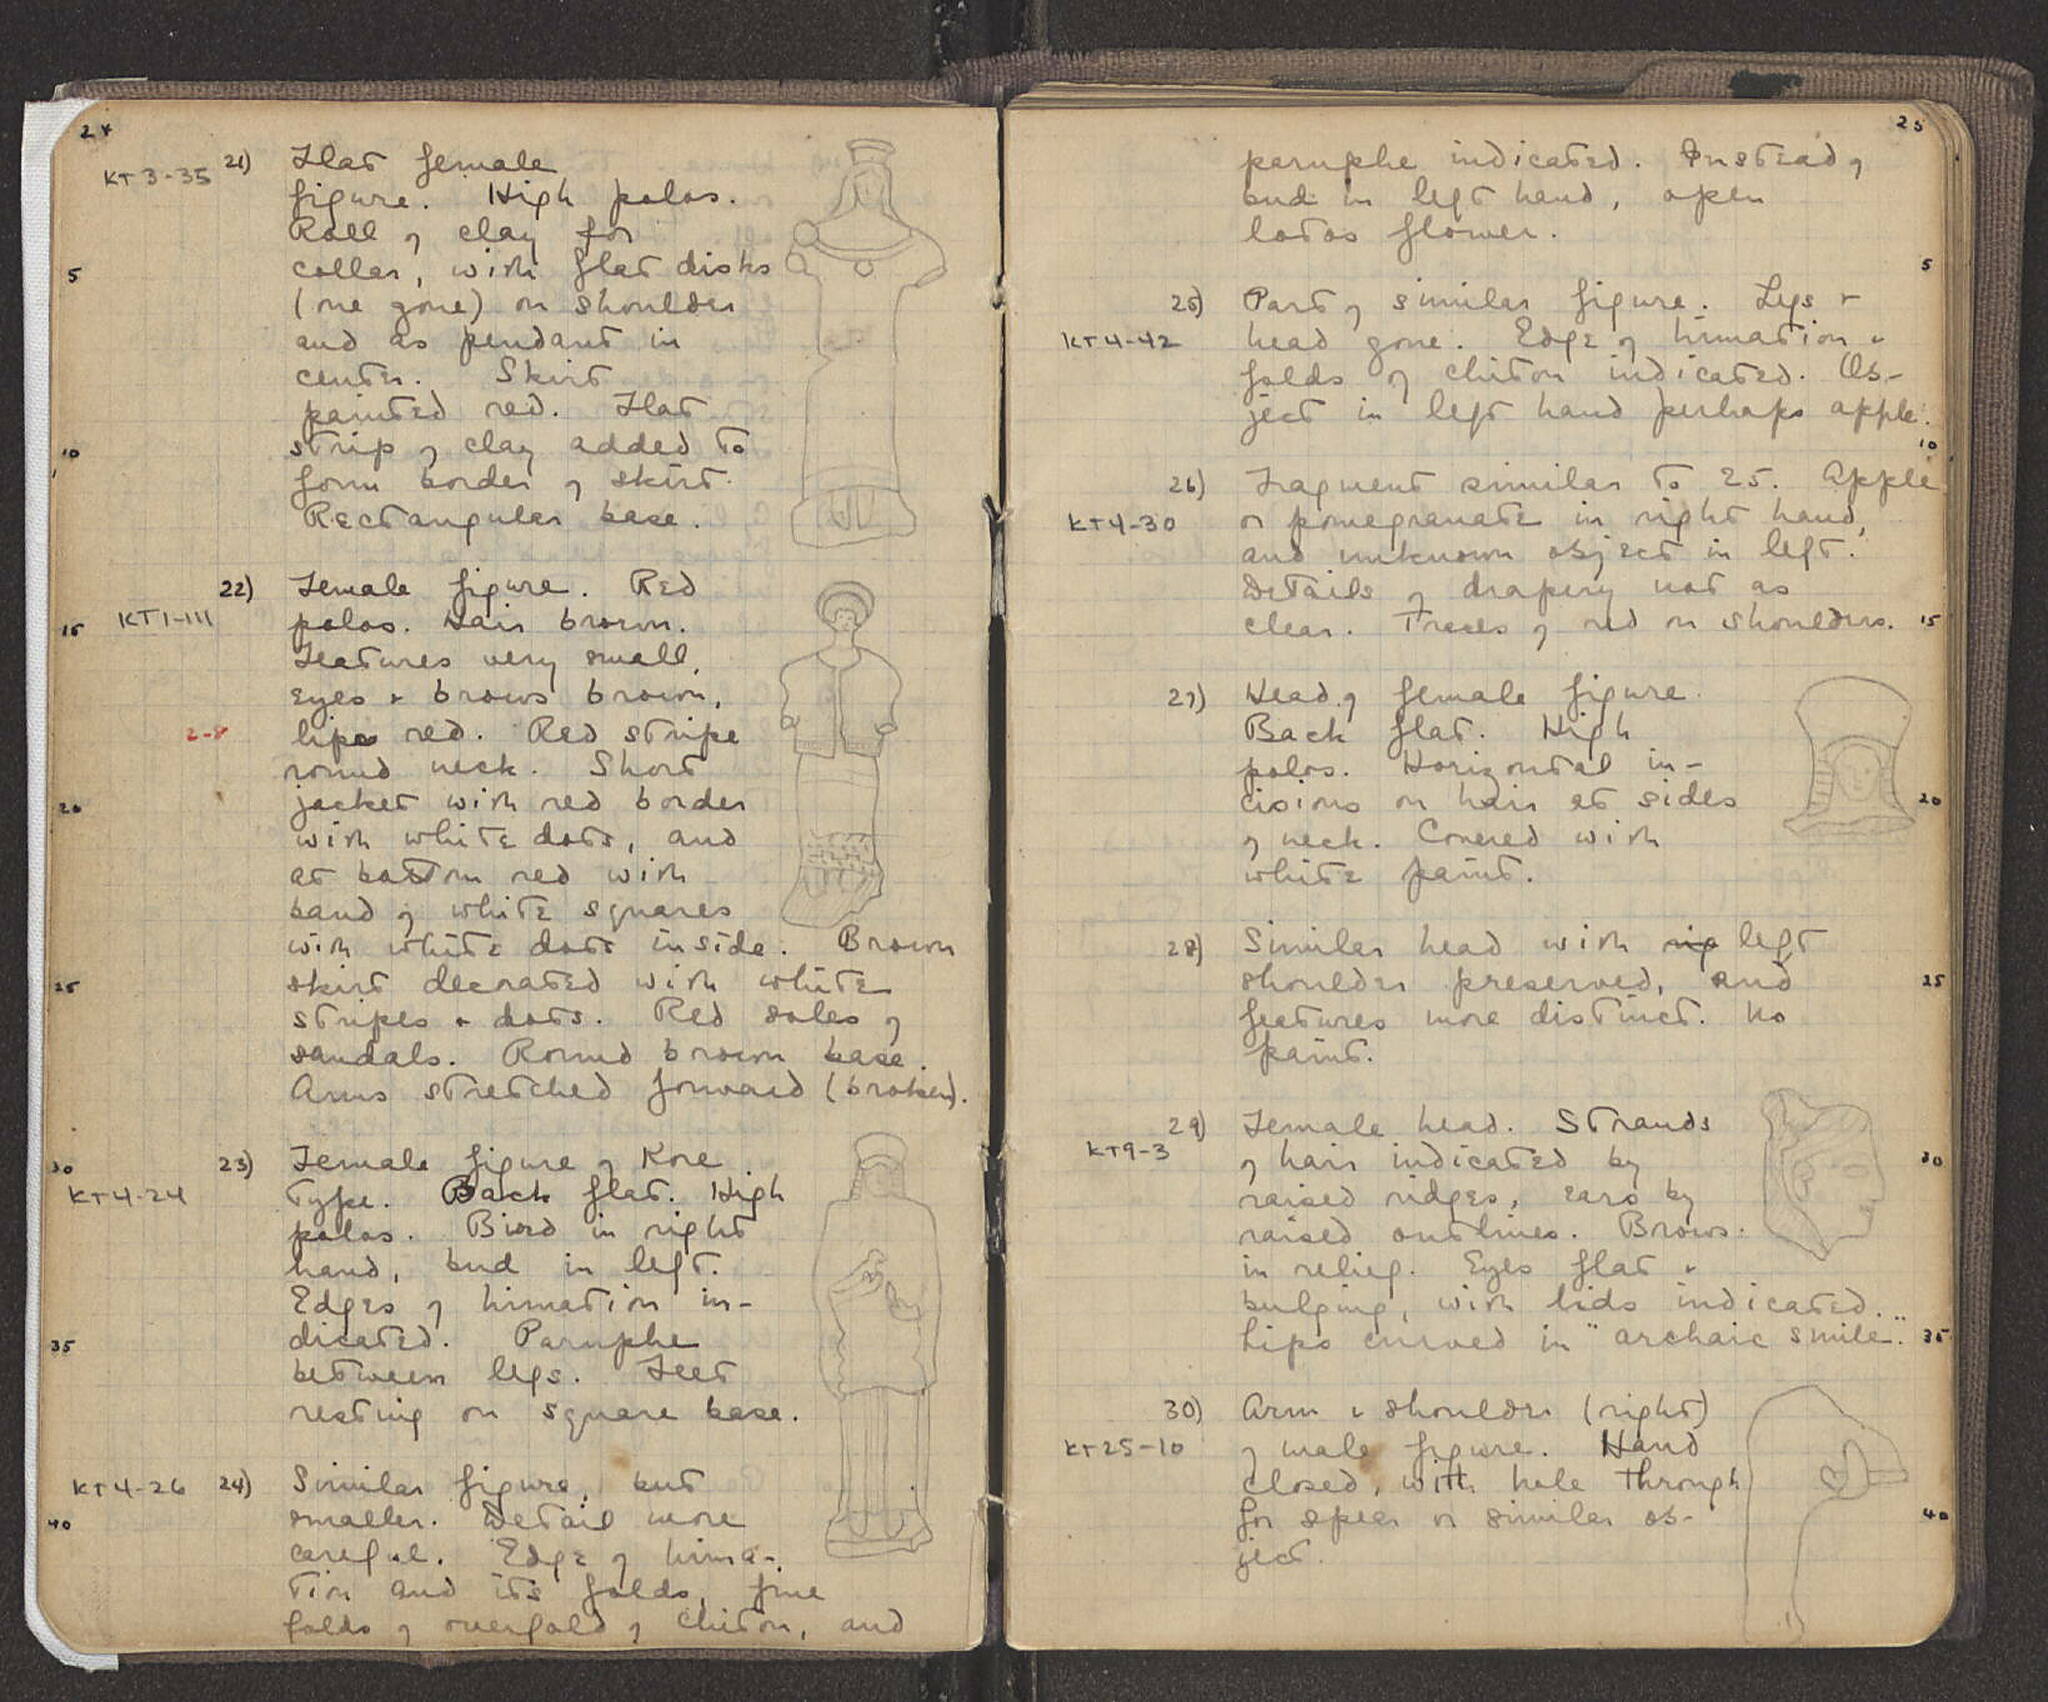 24
KT3-35 21) Flat female
figure. High polos.
Roll of clay for
5 collar, with flat disks
(one gone) on shoulder
and as pendant in
center. Skirt
painted red. Flat
10 strip of clay added to
form border of skirt.
Rectangular base.
22) Female figure. Red
15 KT1-111 polos. Hair brown.
Features very small,
eyes + brows brown,
2-8 lips red. Red stripe
round neck. Short
20 jacket with red border
with white dots, and
at bottom red with
band of white squares
with white dots inside. Brown
25 skirt decorated with white
stripes + dots. Red soles of
sandals. Round brown base.
Arms stretched forward (broken).
30 23) Female figure of Kore
KT4-24 type. Back flat. High
polos. Bird in right
hand, bud in left.
Edges of himation in-
35 dicated. Paruphe
between legs. Feet
resting on square base.
KT4-26 24) Similar figure, but
40 smaller. Detail more
careful. Edge of hima-
tion and its folds, fine
folds of overfold of chiton, and
25
paruphe indicated. Instead of
bud in left hand, open
lotos flower.
5
25) Part of similar figure. Legs +
KT4-42 head gone. Edge of himation +
folds of chiton indicated. Ob-
ject in left hand perhaps apple.
10
26) Fragment similar to 25. Apple
KT4-30 or pomegranate in right hand,
and unknown object in left.
Details of drapery not as
clear. Traces of red on shoulders. 15
27) Head of female figure.
Back flat. High
polos. Horizontal in-
cisions on hair at sides 20
of neck. Covered with
white paint.
28) Similar head with rig left
shoulder preserved, and 25
features more distinct. No
paint.
29) Female head. Strands
KT9-3 of hair indicated by 30
raised ridges, ears by
raised outlines. Brows
in relief. Eyes flat +
bulging, with lids indicated.
Lips curved in "archaic smile". 35
30) Arm + shoulder (right)
KT25-10 of male figure. Hand
closed, with hole through
for spear or similar ob- 40
ject.